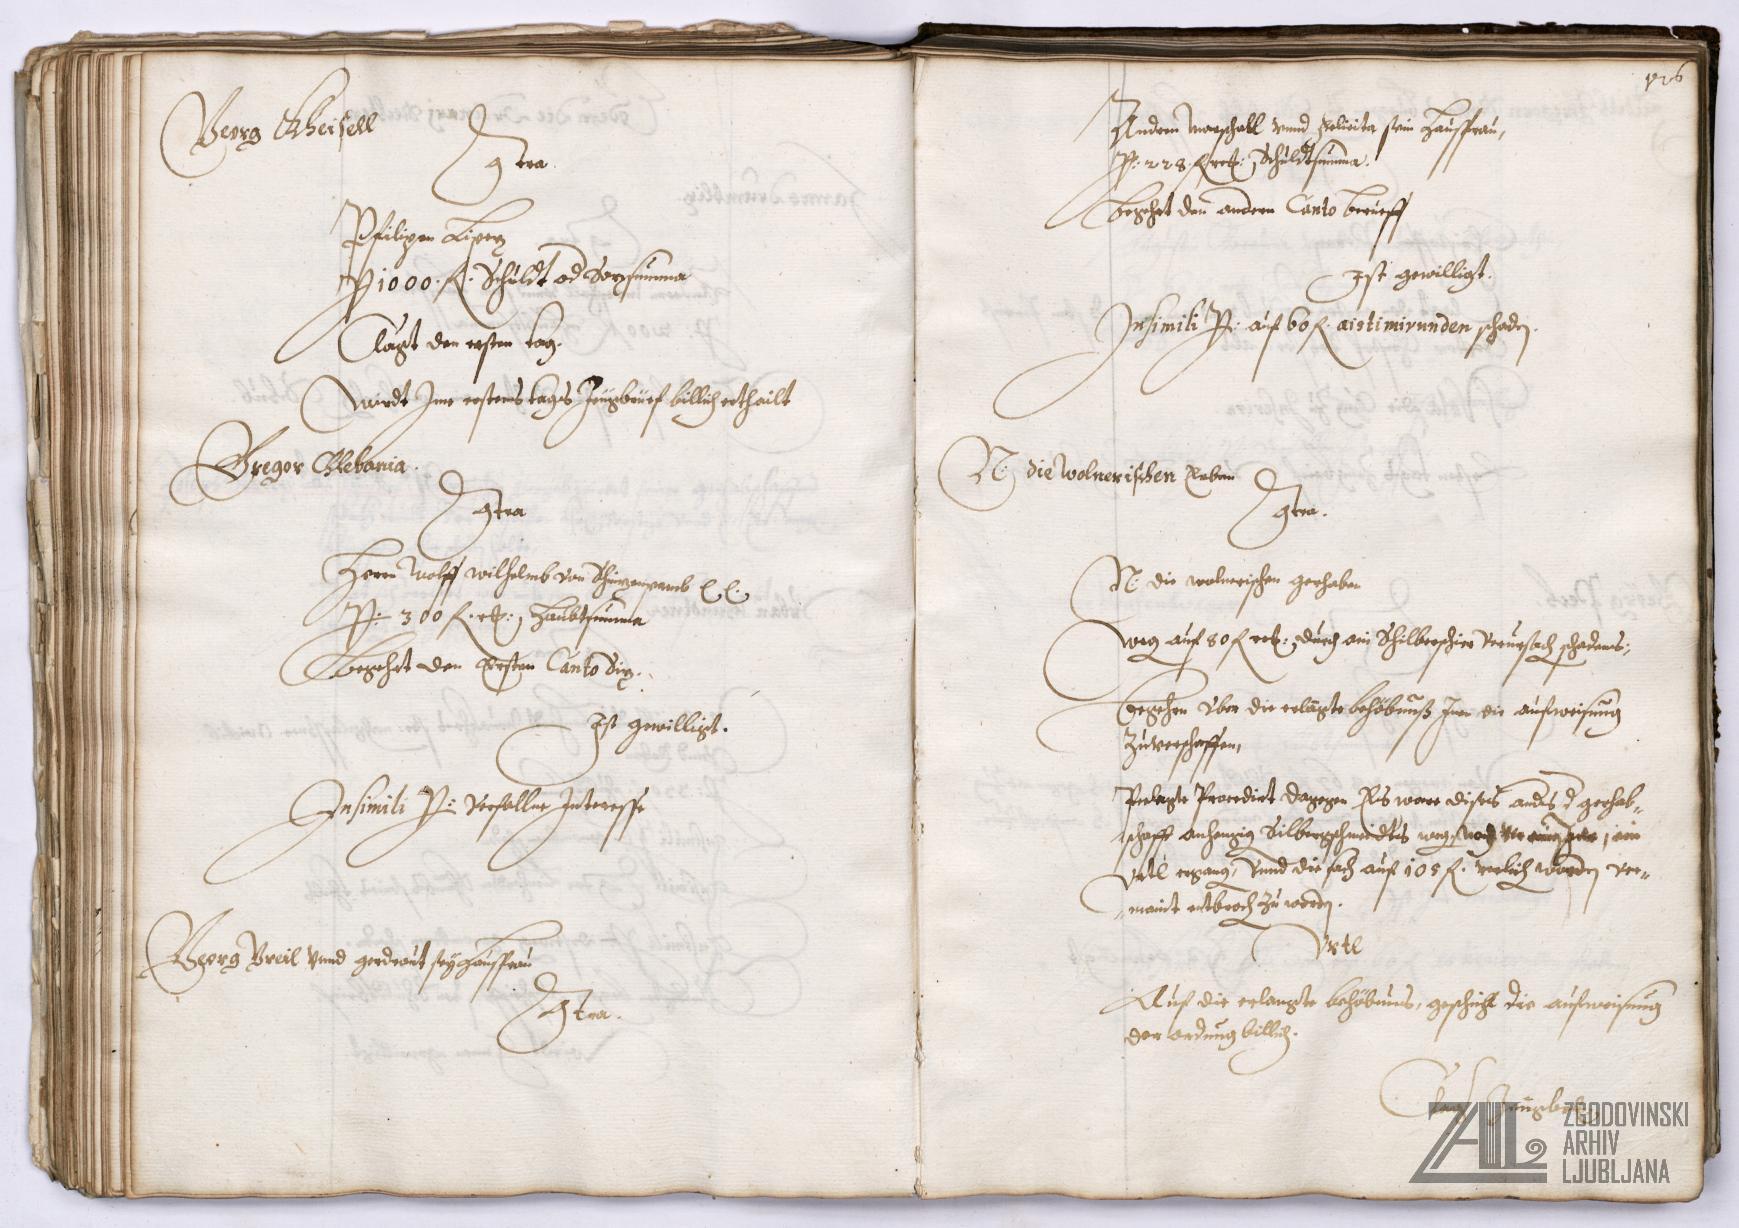 Georg Kheisell
Contra.
Philippen Liperz
P 1000. fl. Schuldt od Vorsumma
Clagt den ersten tag.
Wirdt Ime erstens tags Zeugbrief billich erthailt
Gregor Khlebania.
Contra
Herrn Wolff Wilhelmb von
P: 300 fl. rh: Haubtsumma
begehrt den Ersten Canto
Ist gewilligt.
In simili P: verfallne Interesse
Georg Vreil vnnd gerdraut sein Haussfrau
Contra.
126
Andern Marschall vnnd Felicita sein Haussfrau,
P: 228 fl rh: Schuldtsumma.
begehrt den andern Canto berueff
Ist gewilligt.
In simili P: auf 60 fl. aistimirunden schaden.
N: die Wolnerischen Erben
Contra.
N: die wolnerischen gerhaben
weg auf 80 fl rh: durch ein vervrsach schadens:
begehrn vber die erlangte behöbnuß Inen die aufweisung
zuuerschaffen,
Beclagte Procedirt dagegen Es ware dises and's d' gerhab-
schafft anhengig Silbergschmeidts weg,
Vrtl ergang, vnnd die sach auf 105 fl. worden ver-
maint zu werden.
Vrtl
Auf die erlangte behöbnus, geschicht die aufweisung
der ordnung billich.
ZAL
ZGODOVINSKI
ARHIV
LJUBLJANA